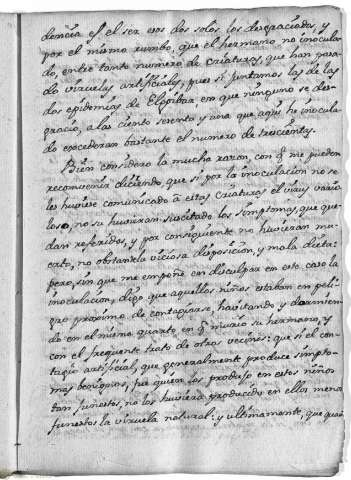 demencia es el ser esos dos solos los desgraciados, y
por el mismo rumbo, que el hermano no inocula-
do, entre tanto numero de criaturas, que han pasa-
do viruelas artificiales, pues si juntamos las de las
dos epidemias de Elgoibar en que ninguno se des-
gracio, a las ciento sesenta y una que aqui he inocula-
do excederan bastante el numero de trescientas.
Bien considero la mucha razon, con q.e me pueden
reconvenir diciendo, que si por la inoculacion no se
les huviese comunicado à estas criaturas el virus vario-
loso, no se huvieran suscitado los simptomas, que que-
dan referidos, y por consiguiente no huvieran mu-
erto, no obstante la viciosa disposicion, y mala dieta:
pero, sin que me empeñe en disculpar en este caso la
inoculacion, digo que aquellos niños estaban en peli-
gro proximo de contagiarse, havitando y durmien-
do en el mismo quarto, en q.e murio su hermano, y
con el frequente trato de otros vecinos: que si el con-
tagio artificial, que generalmente produce simpto-
mas benignos, fue quien los produjo en estos niños
tan funestos, no los huviera producido en ellos menos
funestos la viruela natural: y ultimamente, que quan-